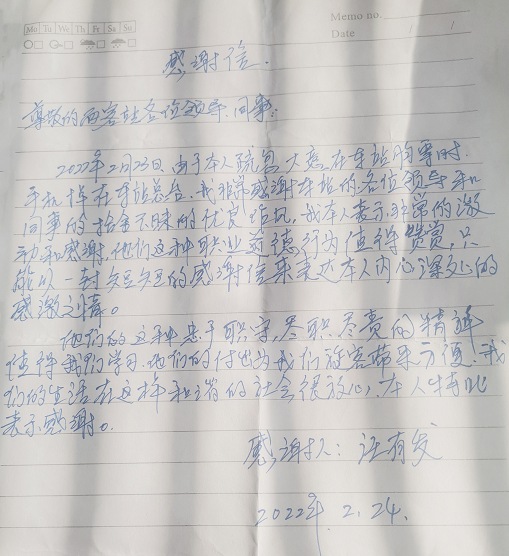 Memo no.
Mo Tu We Th Fr Sa Su
Date
感谢信.
尊敬的西客站各位领导.同事:
2022年2月23日,由于本人疏忽大意,在车站购票时.
手机掉在车站总台.我非常感谢车站的各位领导和
同事的拾金不昧的优良作风,我本人表示非常的激
动和感谢,他们这种职业道德行为值得赞赏,只
能以一封短短的感谢信来表达本人内心深处的
感激之情。
他们的这种忠于职守,尽职尽责的精神
值得我们学习.他们的付出为我们旅客带来方便.我
们的生活在这样和谐的社会很放心,本人特此
表示感谢。
感谢人:汪有发
2022年.2.24.